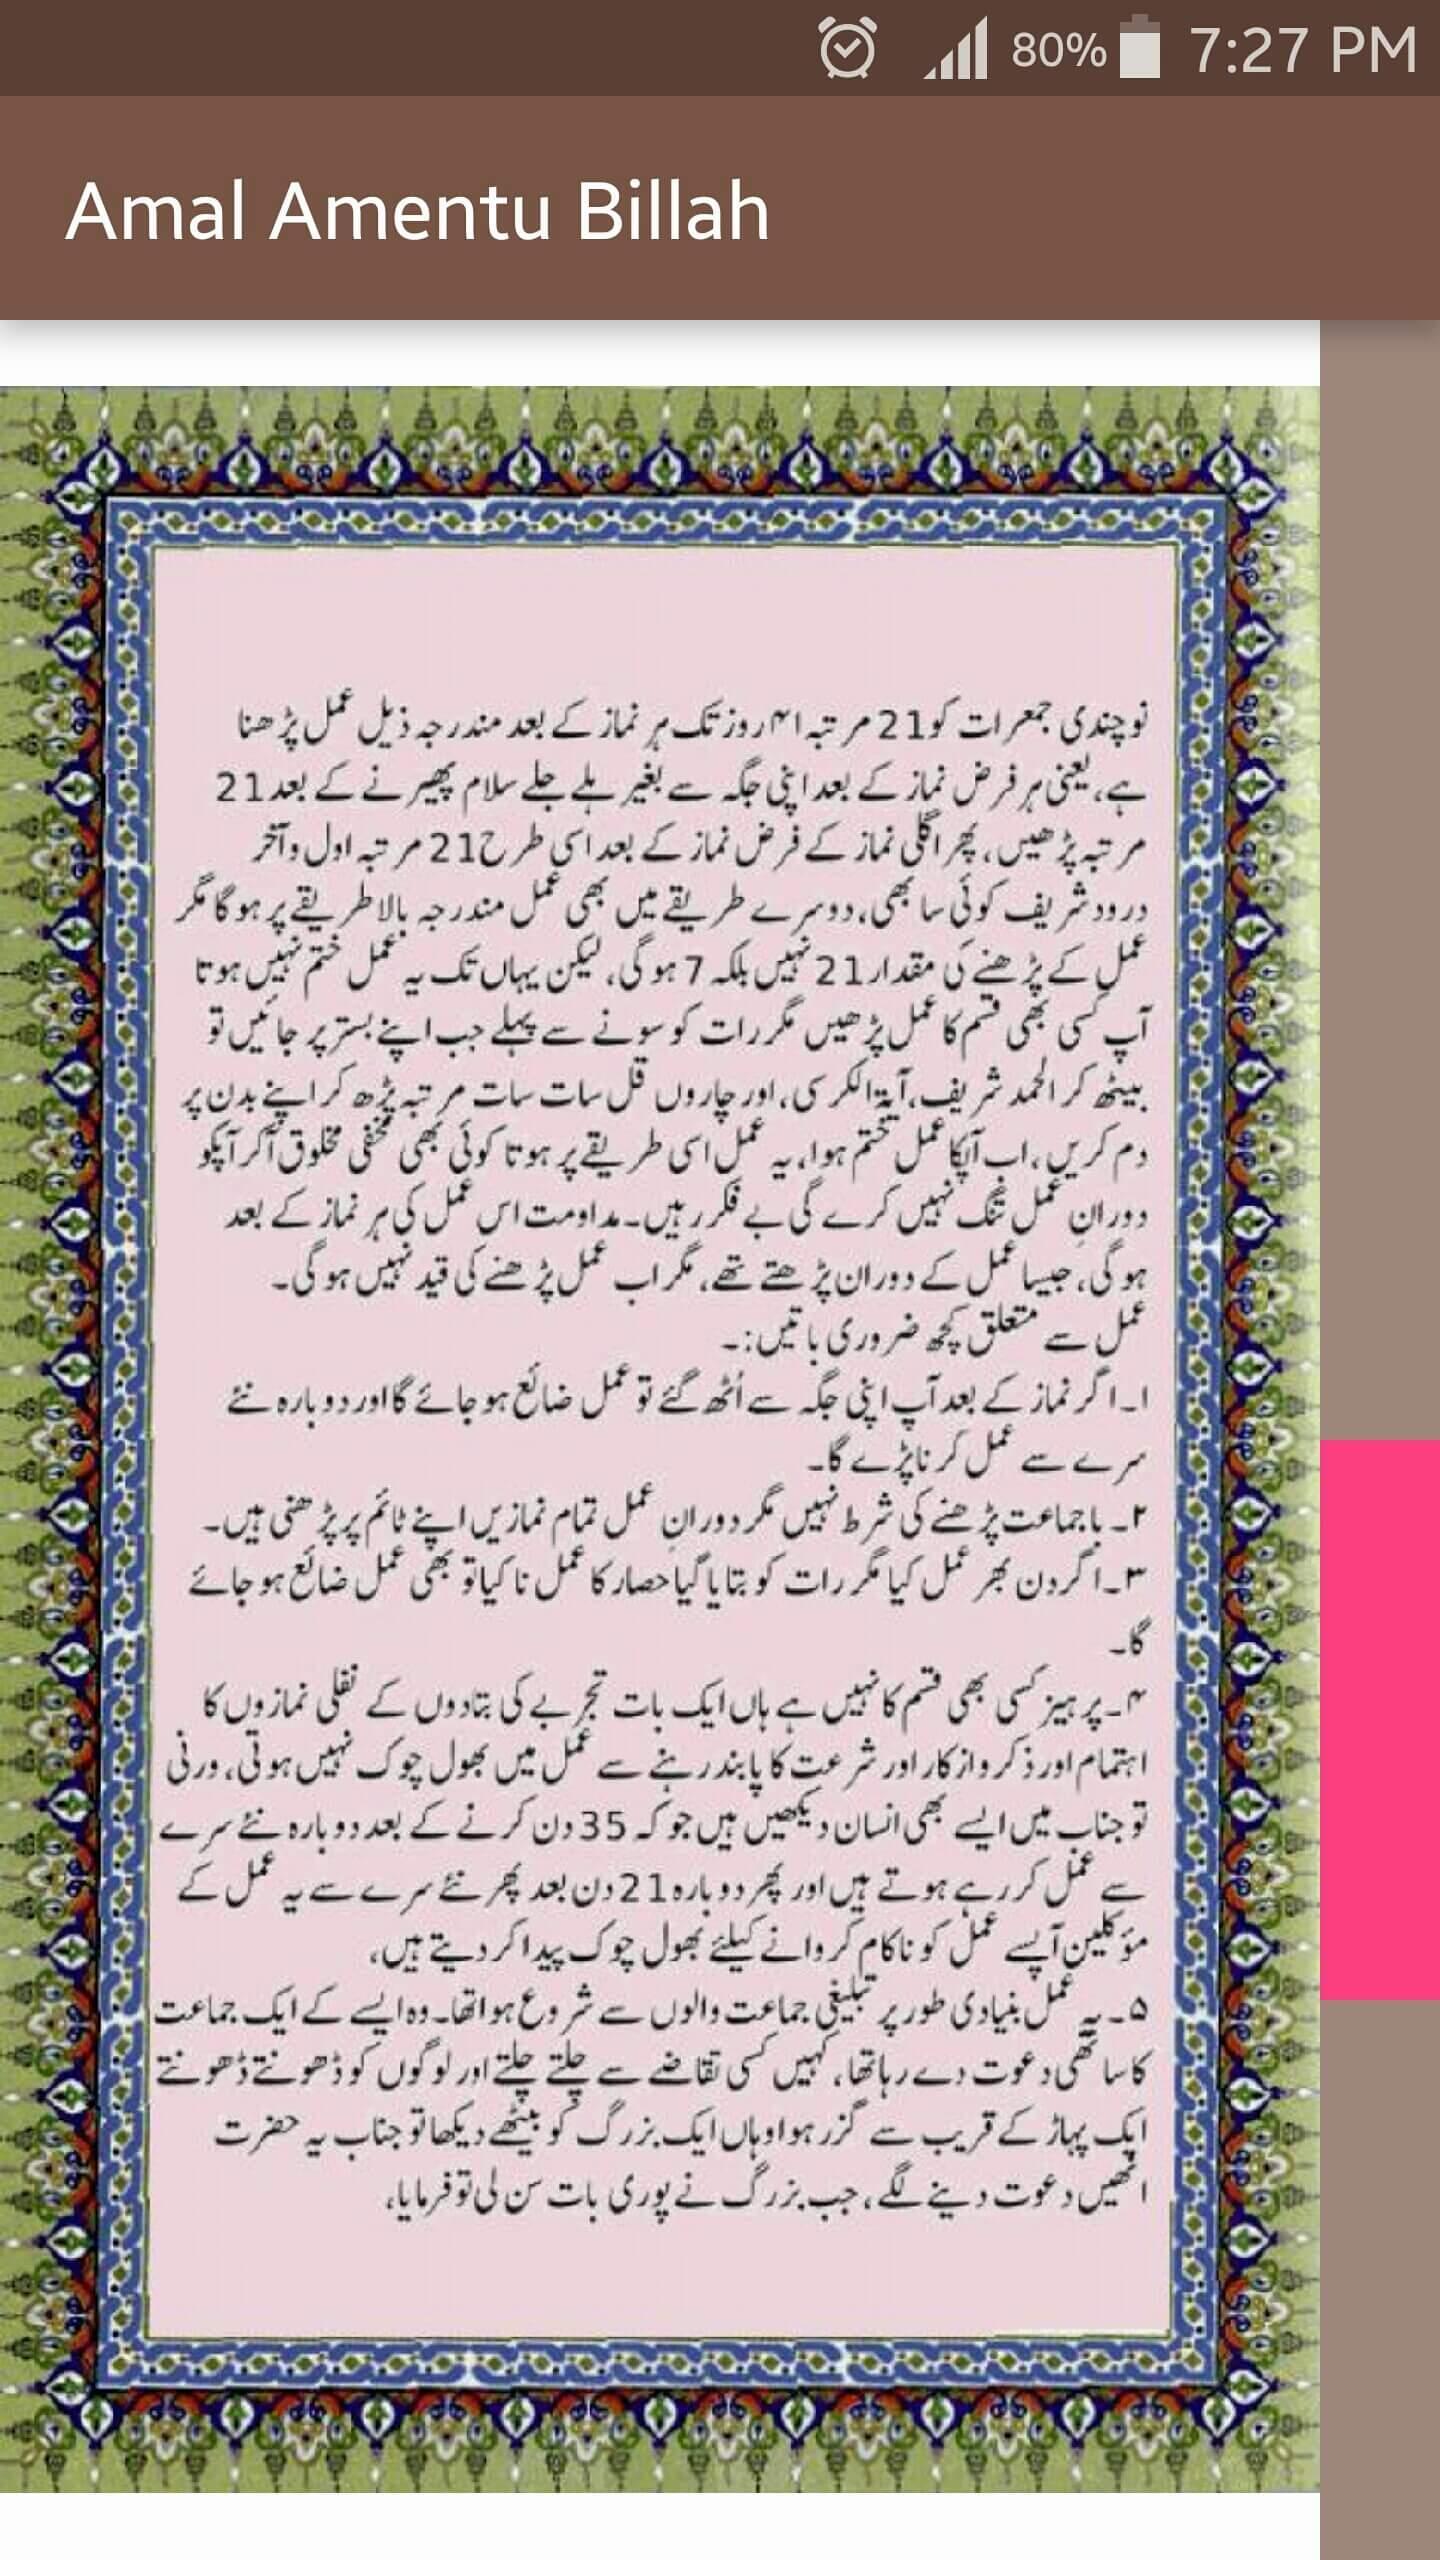 80% 7:27 PM
Amal Amentu Billah
نوچندی جمعرات کو 21 مرتبہ ۴۱ روز تک ہر نماز کے بعد مندرجہ ذیل عمل پڑھنا
ہے، یعنی ہر فرض نماز کے بعد اپنی جگہ سے بغیر ہلے جلے سلام پھیرنے کے بعد 21
مرتبہ پڑھیں، پھر اگلی نماز کے فرض نماز کے بعد اسی طرح 21 مرتبہ اول و آخر
درود شریف کوئی سا بھی، دوسرے طریقے میں بھی عمل مندرجہ بالا طریقے پر ہو گا مگر
عمل کے پڑھنے کی مقدار 21 نہیں بلکہ 7 ہو گی، لیکن یہاں تک یہ عمل ختم نہیں ہوتا
آپ کسی بھی قسم کا عمل پڑھیں مگر رات کو سونے سے پہلے جب اپنے بستر پر جائیں تو
بیٹھ کر الحمد شریف، آیۃ الکرسی، اور چاروں قل سات سات مرتبہ پڑھ کر اپنے بدن پر
دم کریں، اب آپکا عمل ختم ہوا، یہ عمل اسی طریقے پر ہوتا کوئی بھی مخفی مخلوق آکر آپکو
دورانِ عمل تنگ نہیں کرے گی بے فکر رہیں۔ مداومت اس عمل کی ہر نماز کے بعد
ہو گی، جیسا عمل کے دوران پڑھتے تھے، مگر اب عمل پڑھنے کی قید نہیں ہو گی۔
عمل سے متعلق کچھ ضروری باتیں:۔
۱۔ اگر نماز کے بعد آپ اپنی جگہ سے اُٹھ گئے تو عمل ضائع ہو جائے گا اور دوبارہ نئے
سرے سے عمل کرنا پڑے گا۔
۲۔ باجماعت پڑھنے کی شرط نہیں مگر دورانِ عمل تمام نمازیں اپنے ٹائم پر پڑھنی ہیں۔
۳۔ اگر دن بھر عمل کیا مگر رات کو بتایا گیا حصار کا عمل نا کیا تو بھی عمل ضائع ہو جائے
گا۔
۴۔ پرہیز کسی بھی قسم کا نہیں ہے ہاں ایک بات تجربے کی بتا دوں کے نفلی نمازوں کا
اہتمام اور ذکر و ازکار اور شرعت کا پابند رہنے سے عمل میں بھول چوک نہیں ہوتی، ورنی
تو جناب میں ایسے بھی انسان دیکھیں ہیں جو کہ 35 دن کرنے کے بعد دوبارہ نئے سرے
سے عمل کر رہے ہوتے ہیں اور پھر دوبارہ 21 دن بعد پھر نئے سرے سے یہ عمل کے
مؤکلین آپسے عمل کو ناکام کروانے کیلئے بھول چوک پیدا کر دیتے ہیں،
۵۔ یہ عمل بنیادی طور پر تبلیغی جماعت والوں سے شروع ہوا تھا۔ وہ ایسے کے ایک جماعت
کا ساتھی دعوت دے رہا تھا، کہیں کسی تقاضے سے چلتے چلتے اور لوگوں کو ڈھونتے ڈھونتے
ایک پہاڑ کے قریب سے گزر ہوا وہاں ایک بزرگ کو بیٹھے دیکھا تو جناب یہ حضرت
انھیں دعوت دینے لگے، جب بزرگ نے پوری بات سن لی تو فرمایا،